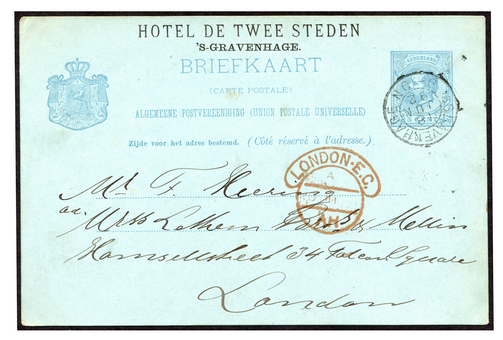 HOTEL DE TWEE STEDEN
'S-GRAVENHAGE.
BRIEFKAART
(CARTE POSTALE)
ALGEMEENE POSTVEREENIGING (UNION POSTALE UNIVERSELLE)
Zijde voor het adres bestemd. (Côté réservé à l'adresse.)
NEDERLAND
'S-GRAVENHAGE
LONDON·E.C.
A
AH
Mr F. Heering
Mess Lethem &
Hamsellstreet 34 Falcon Square
London